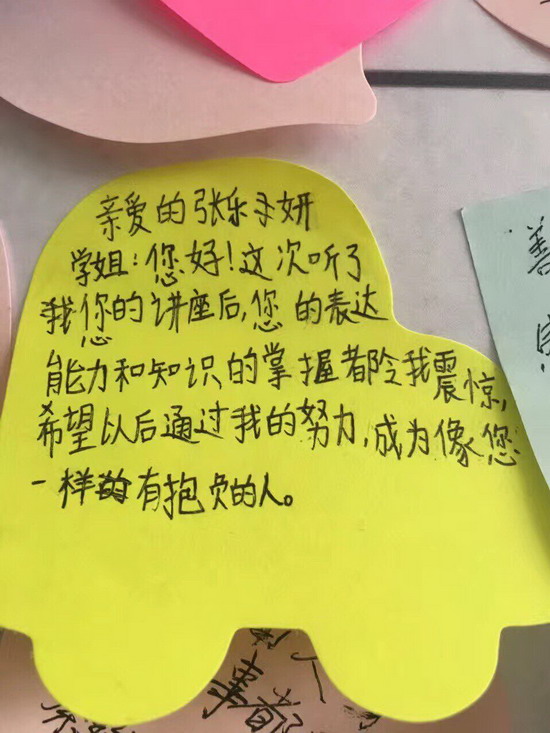 亲爱的张乐予妍
学姐:您好!这次听了
我您的讲座后,您的表达
能力和知识的掌握都令我震惊,
希望以后通过我的努力,成为像您
一样的有抱负的人。
善